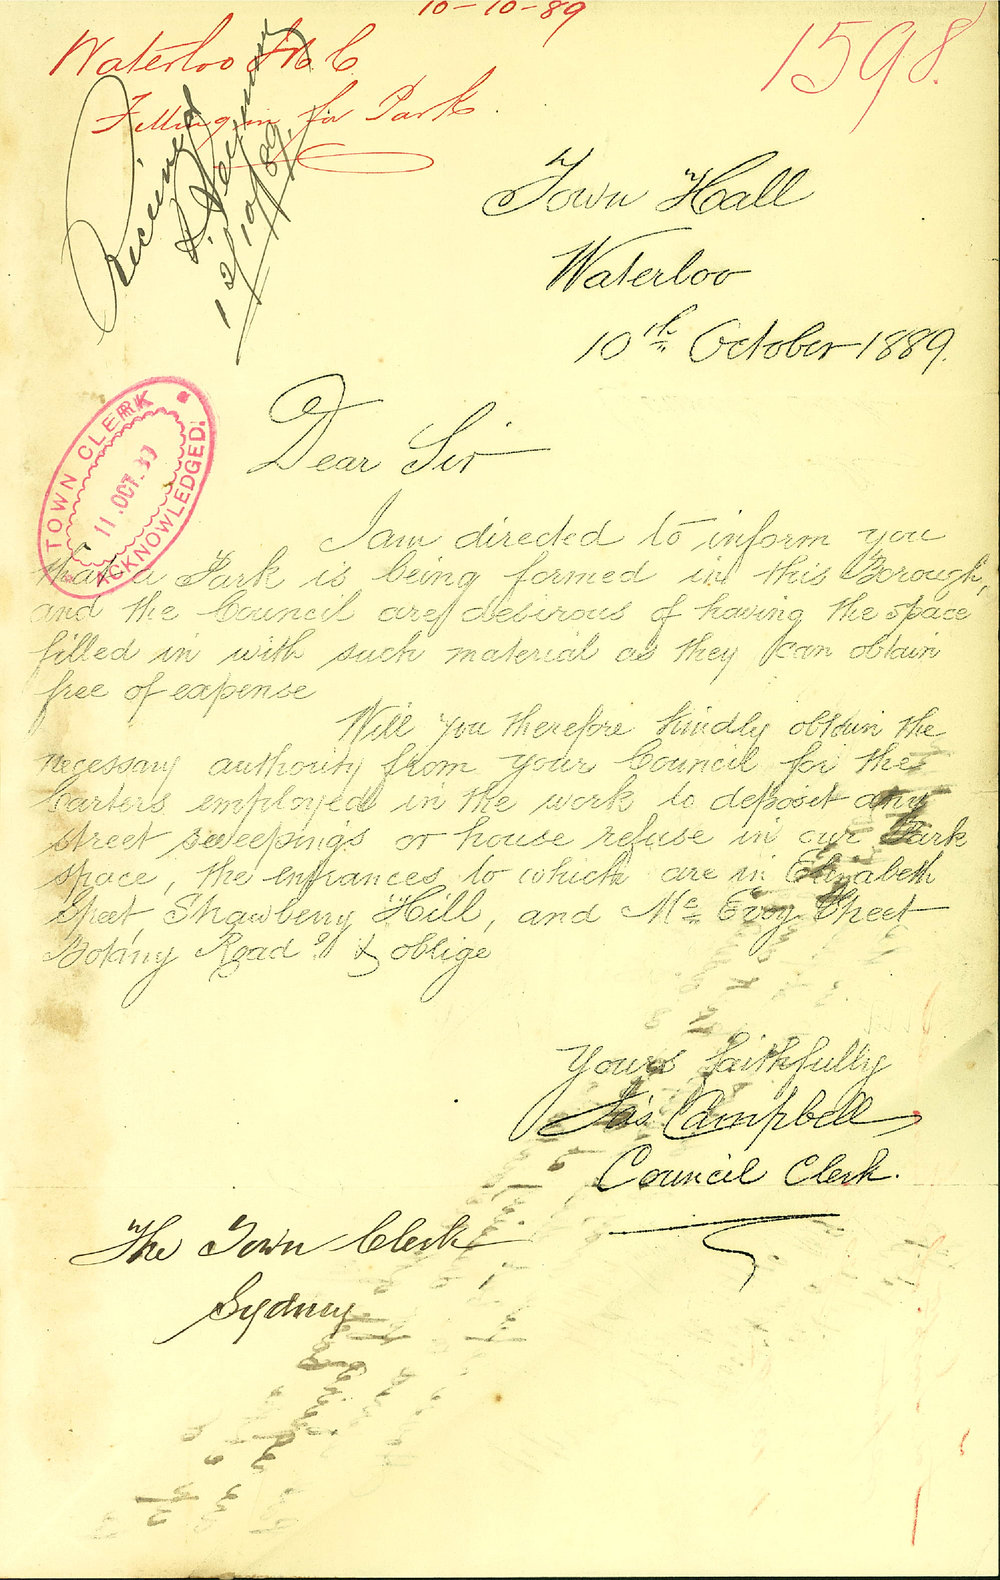 10-10-89
Waterloo M.C
Filling in for Park.
1598.
Received
12/10/89
Town Hall
Waterloo
10th October 1889.
TOWN CLERK
11.OCT.
ACKNOWLEDGED.
Dear Sir
I am directed to inform you
that a Park is being formed in this Borough,
and the Council are desirous of having the space
filled in with such material as they can obtain
free of expense
Will you therefore kindly obtain the
necessary authority from your Council for the
Carters employed in the work to deposit any
street sweepings or house refuse in our Park
space, the entrances to which are in Elizabeth
Street, Strawberry Hill, and Mc Evoy Street
Botany Road & oblige
Yours faithfully
Jas Campbell
Council Clerk.
The Town Clerk
Sydney